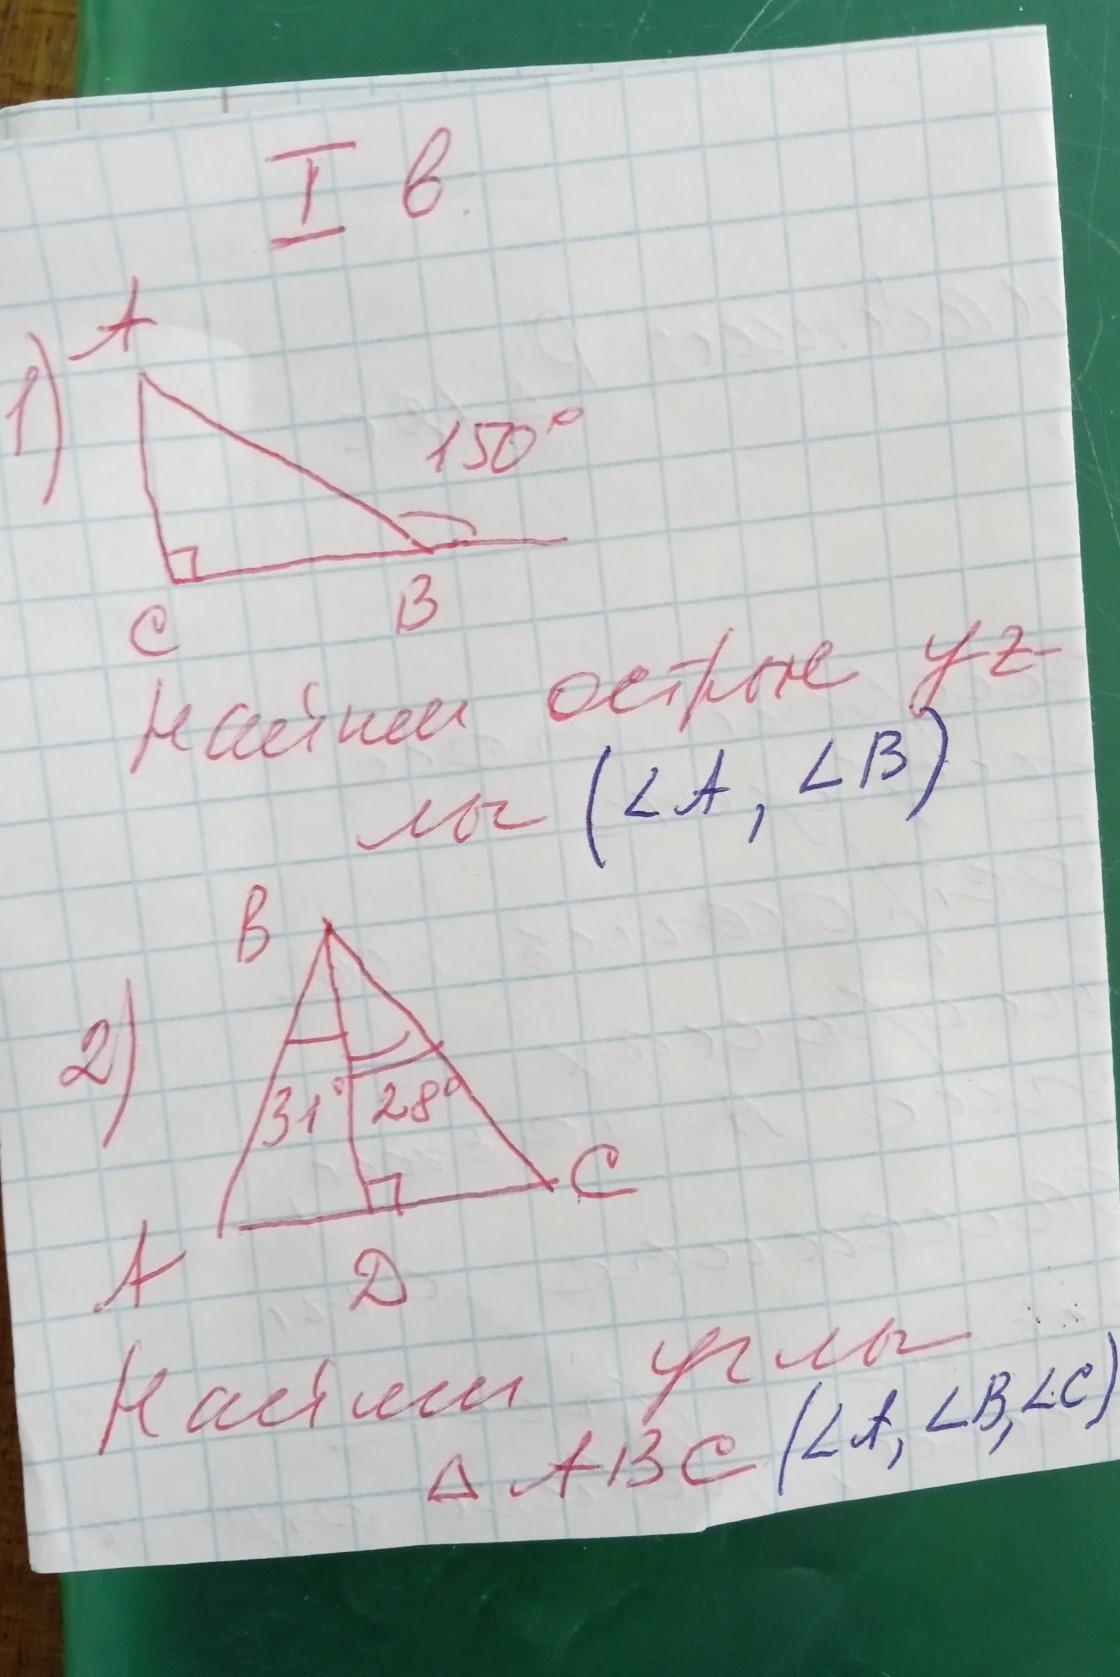 I в.
1)
A
150°
C
B
Найти острые уг-
лы (∠A, ∠B)
2)
B
31° 28°
A
D
C
Найти углы
△ ABC (∠A, ∠B, ∠C)